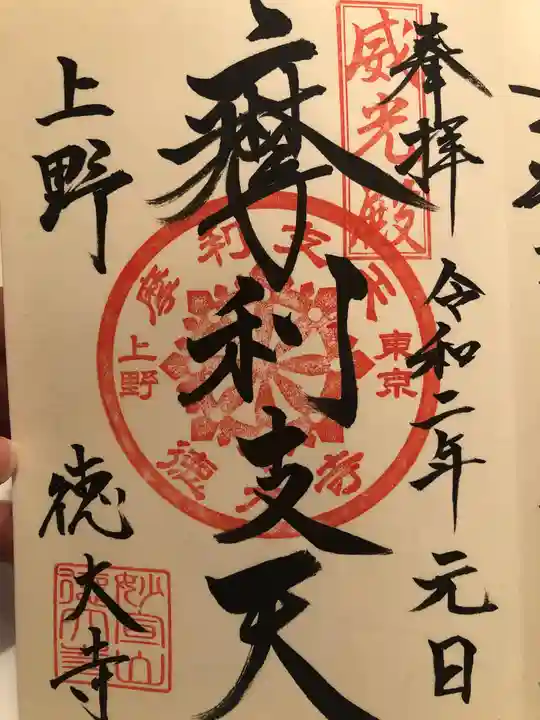 奉拝 令和二年 元日
威光殿
摩利支天
上野 徳大寺
摩利支天
東京
上野
徳大寺
妙宣山
徳大寺